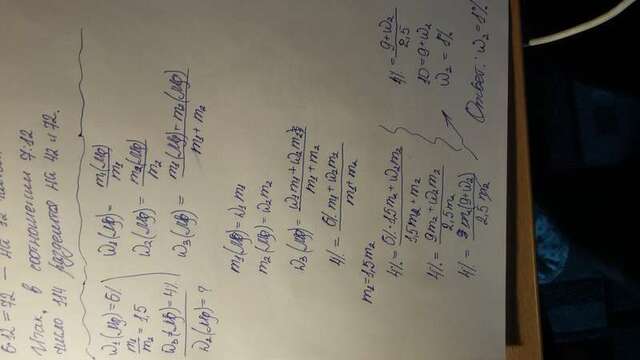 6·12 = 72 — на 12
Итак, в соотношении 7:12
число 114 разделится на 42 и 72.
ω₁(Mg) = 6%
m₁/m₂ = 1,5
ω₃(Mg) = 4%
ω₂(Mg) = ?
ω₁(Mg) = m₁(Mg)/m₁
ω₂(Mg) = m₂(Mg)/m₂
ω₃(Mg) = m₁(Mg) + m₂(Mg)/m₁ + m₂
m₁(Mg) = ω₁ m₁
m₂(Mg) = ω₂ m₂
ω₃(Mg) = ω₁m₁ + ω₂m₂/m₁ + m₂
4% = 6% m₁ + ω₂m₂/m₁ + m₂
m₁ = 1,5m₂
4% = 6% · 1,5m₂ + ω₂m₂/1,5m₂ + m₂
4% = 9m₂ + ω₂m₂/2,5m₂
4% = m₂(9+ω₂)/2,5 m₂
4% = 9+ω₂/2,5
10 = 9+ω₂
ω₂ = 1%
Ответ: ω₂ = 1%